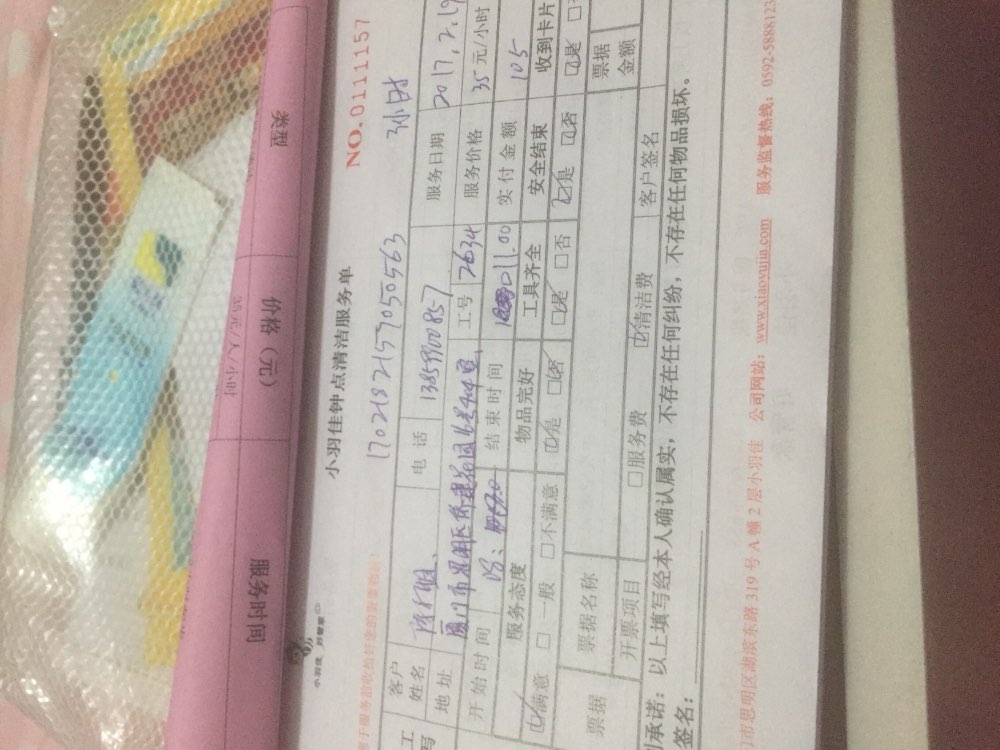 类型
价格（元）
服务时间
35元/人/小时
NO.01111157
小羽佳 好管家
小羽佳钟点清洁服务单
17021821579050563
3小时
客户姓名
电话
服务日期 2017.2.19
地址
工号 2634
服务价格 35元/小时
开始时间
结束时间 11:00
实付金额 105
服务态度
物品完好
工具齐全
安全结束
收到卡片
☑满意 □一般 □不满意
☑是 □否
☑是 □否
☑是 □否
☑是
票据
票据名称
票据金额
开票项目
□服务费
☑清洁费
客户签名
承诺：以上填写经本人确认属实，不存在任何纠纷，不存在任何物品损坏。
签名：
门市思明区湖滨东路 319 号 A 幢 2 层小羽佳 公司网站：www.xiaoyujia.com 服务监督热线：0592-5888123